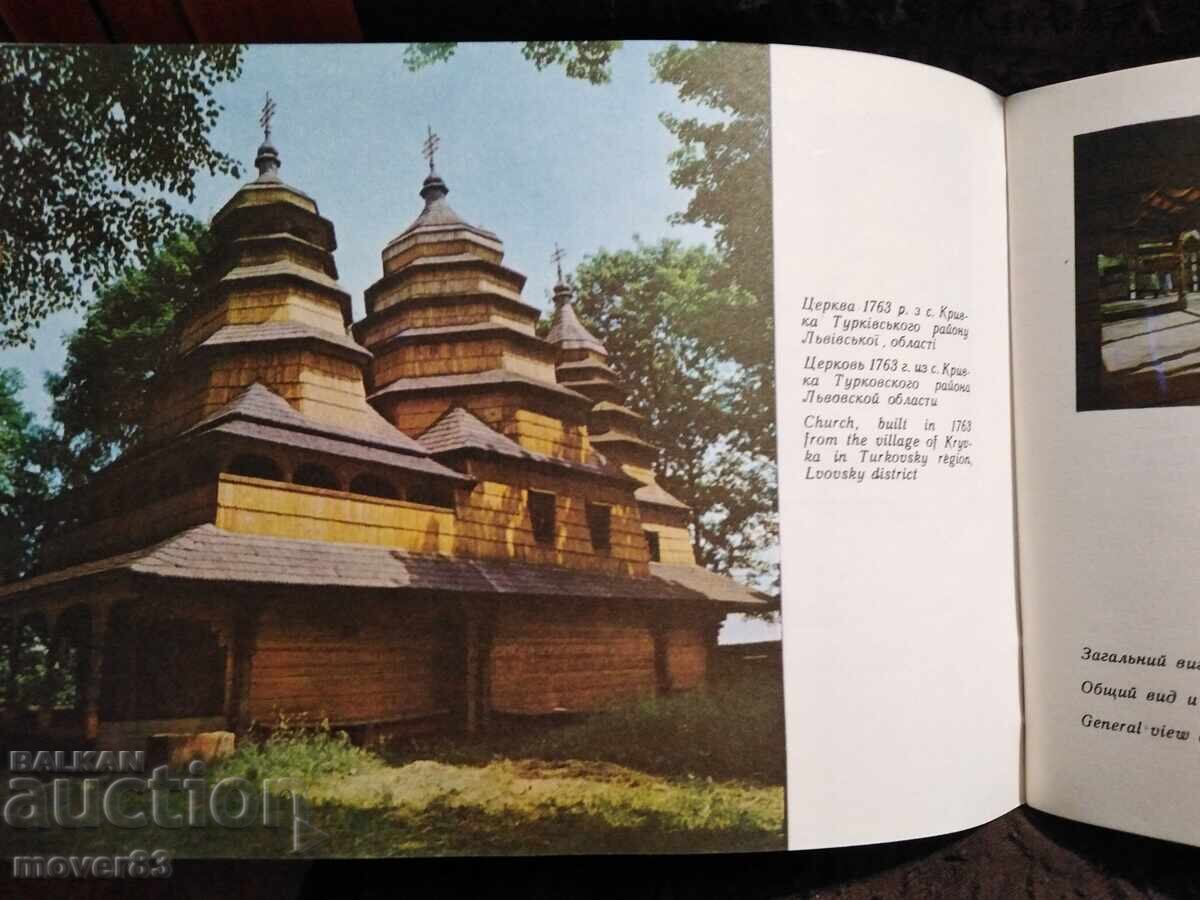 Церква 1763 р. з с. Крив-
ка Турківського району
Львівської, області
Церковь 1763 г. из с. Крив-
ка Турковского района
Львовской области
Church, built in 1763
from the village of Kryv-
ka in Turkovsky region,
Lvovsky district
Загальний
Общий вид и
General view
BALKAN
auction
mover83